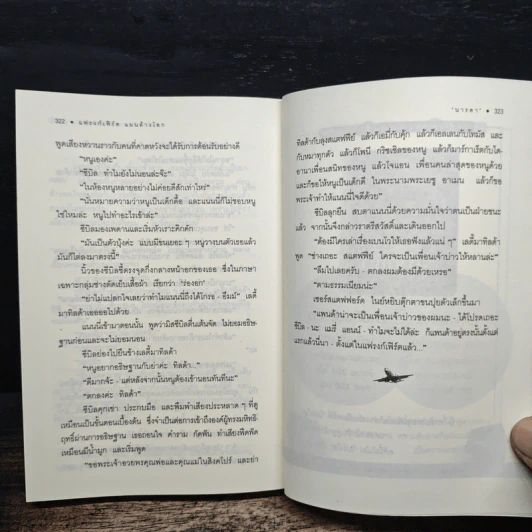 322 • แฟรงก์เฟิร์ต แมนต่างโลก
พูดเสียงหวานราวกับคนที่คาดหวังจะได้รับการต้อนรับอย่างดี
"หนูเองค่ะ"
"ซีบิล ทำไมยังไม่นอนล่ะจ๊ะ"
"ในห้องหนูหลายอย่างไม่ค่อยดีสักเท่าไหร่"
"นั่นหมายความว่าหนูเป็นเด็กดื้อ และแนนนี่ก็ไม่ชอบหนู
ใช่ไหมล่ะ หนูไปทำอะไรเข้าล่ะ"
ซีบิลมองเพดานและเริ่มหัวเราะคิกคัก
"มันเป็นตัวบุ้งค่ะ แบบมีขนเยอะ ๆ หนูวางบนตัวเธอแล้ว
มันก็ไต่ลงมาตรงนี้"
นิ้วของซีบิลชี้ตรงจุดกึ่งกลางหน้าอกของเธอ ซึ่งในภาษา
เฉพาะกลุ่มช่างตัดเย็บเสื้อผ้า เรียกว่า "ร่องอก"
"ย่าไม่แปลกใจเลยว่าทำไมแนนนี่ถึงได้โกรธ - อืมม์" เลดี้
มาทิลด้าเออออไปด้วย
แนนนี่เข้ามาตอนนั้น พูดว่ามิสซีบิลตื่นเต้นจัด ไม่ยอมอธิษ-
ฐานก่อนและจะไม่ยอมนอน
ซีบิลย่องไปยืนข้างเลดี้มาทิลด้า
"หนูอยากอธิษฐานกับย่าค่ะ ทิลด้า..."
"ดีมากจ้ะ - แต่หลังจากนั้นหนูต้องเข้านอนทันทีนะ"
"ตกลงค่ะ ทิลด้า"
ซีบิลคุกเข่า ประกบมือ และพึมพำเสียงประหลาด ๆ ที่ดู
เหมือนเป็นขั้นตอนเบื้องต้น ซึ่งจำเป็นต่อการเข้าถึงองค์ผู้ทรงมหิทธิ-
ฤทธิ์ผ่านการอธิษฐาน เธอถอนใจ คำราม กัดฟัน ทำเสียงฟืดฟัด
เหมือนมีน้ำมูก และเริ่มพูด
"ขอพระเจ้าอวยพรคุณพ่อและคุณแม่ในสิงคโปร์ และย่า
"นารดา" • 323
ทิลด้ากับลุงสแตฟฟีย์ แล้วก็เอมี่กับคุ้ก แล้วก็เอลเลนกับโทมัส และ
กับหมาทุกตัว แล้วก็โพนี่ กริซเซิลของหนู แล้วก็มาร์กาเร็ตกับได-
อานาเพื่อนสนิทของหนู แล้วโจแอน เพื่อนคนล่าสุดของหนูด้วย
และก็ขอให้หนูเป็นเด็กดี ในพระนามพระเยซู อาเมน แล้วก็ขอ
พระเจ้าทำให้แนนนี่ใจดีด้วย"
ซีบิลลุกยืน สบตาแนนนี่ด้วยความมั่นใจว่าตนเป็นฝ่ายชนะ
แล้ว จากนั้นจึงกล่าวราตรีสวัสดิ์และเดินออกไป
"ต้องมีใครเล่าเรื่องเบนโวให้เธอฟังแล้วแน่ ๆ" เลดี้มาทิลด้า
พูด "ช่างเถอะ สแตฟฟีย์ ใครจะเป็นเพื่อนเจ้าบ่าวให้หลานล่ะ"
"ลืมไปเลยครับ - ตกลงผมต้องมีด้วยเหรอ"
"ตามธรรมเนียมน่ะ"
เซอร์สแตฟฟอร์ด ไนย์หยิบตุ๊กตาขนปุยตัวเล็กขึ้นมา
"แพนด้าน่าจะเป็นเพื่อนเจ้าบ่าวของผมนะ - ได้โปรดเถอะ
ซีบิล - นะ แมรี่ แอนน์ - ทำไมจะไม่ได้ล่ะ ก็แพนด้าอยู่ตรงนั้นตั้งแต่
แรกแล้วนี่นา - ตั้งแต่ในแฟรงก์เฟิร์ตแล้ว..."